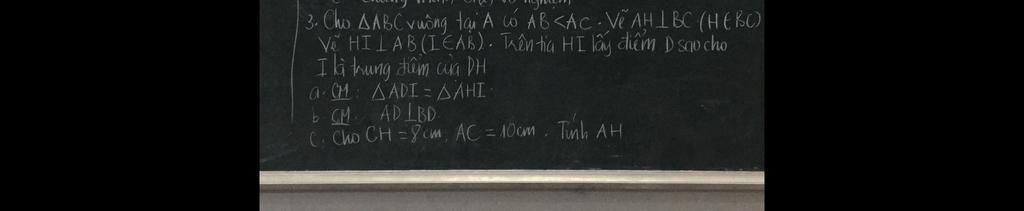 3. Cho ΔABC vuông tại A có AB < AC. Vẽ AH ⊥ BC (H ∈ BC)
Vẽ HI ⊥ AB (I ∈ AB). Trên tia HI lấy điểm D sao cho
I là trung điểm của DH
a. CM: ΔADI = ΔAHI.
b. CM. AD ⊥ BD.
c. Cho CH = 8cm, AC = 10cm. Tính AH